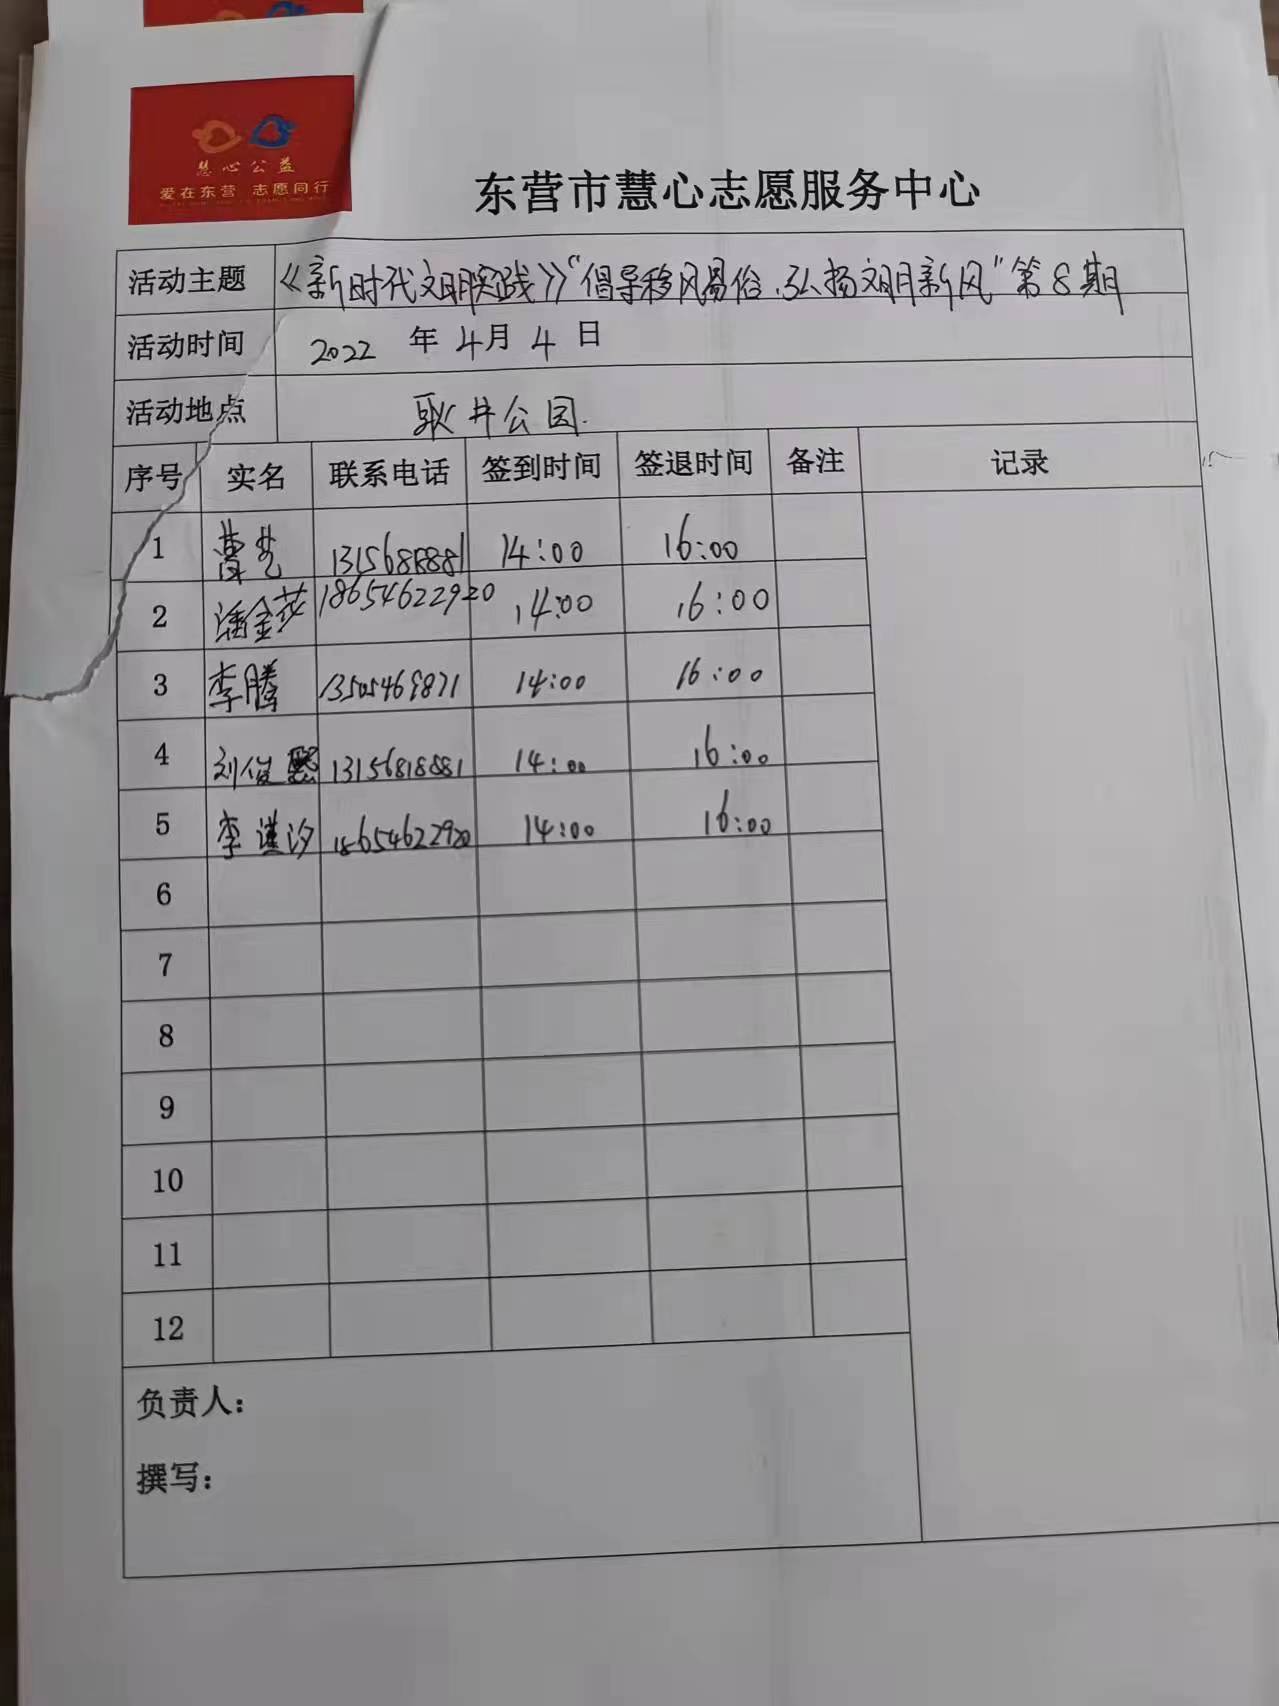 慧心公益
爱在东营 志愿同行
东营市慧心志愿服务中心
活动主题 《新时代文明实践》“倡导移风易俗.弘扬文明新风”第8期
活动时间 2022 年 4月 4 日
活动地点 耿井公园.
序号 实名 联系电话 签到时间 签退时间 备注 记录
1 曹艺 14:00 16:00
2 潘金莎 18654622920 14:00 16:00
3 李腾 14:00 16:00
4 刘俊熙 13156818881 14:00 16:00
5 李淇汐 18654622920 14:00 16:00
6
7
8
9
10
11
12
负责人：
撰写：